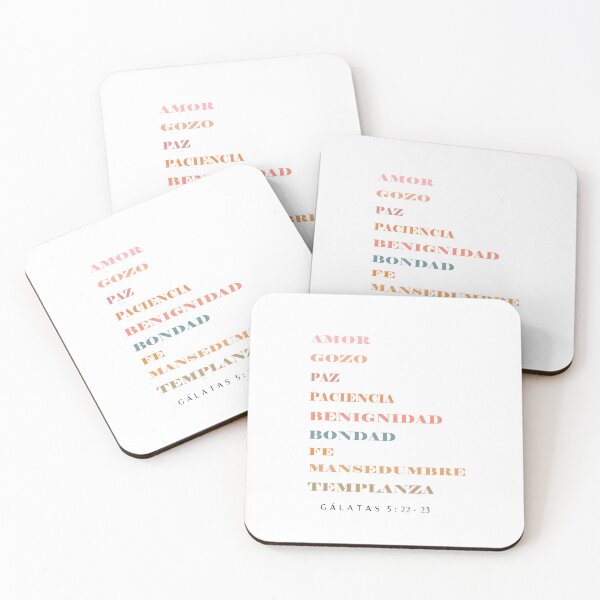 AMOR
GOZO
PAZ
PACIENCIA
BENIGNIDAD
AMOR
GOZO
PAZ
PACIENCIA
BENIGNIDAD
BONDAD
FE
MANSEDUMBRE
AMOR
GOZO
PAZ
PACIENCIA
BENIGNIDAD
BONDAD
FE
MANSEDUMBRE
TEMPLANZA
GÁLATAS 5:
AMOR
GOZO
PAZ
PACIENCIA
BENIGNIDAD
BONDAD
FE
MANSEDUMBRE
TEMPLANZA
GÁLATAS 5:22-23